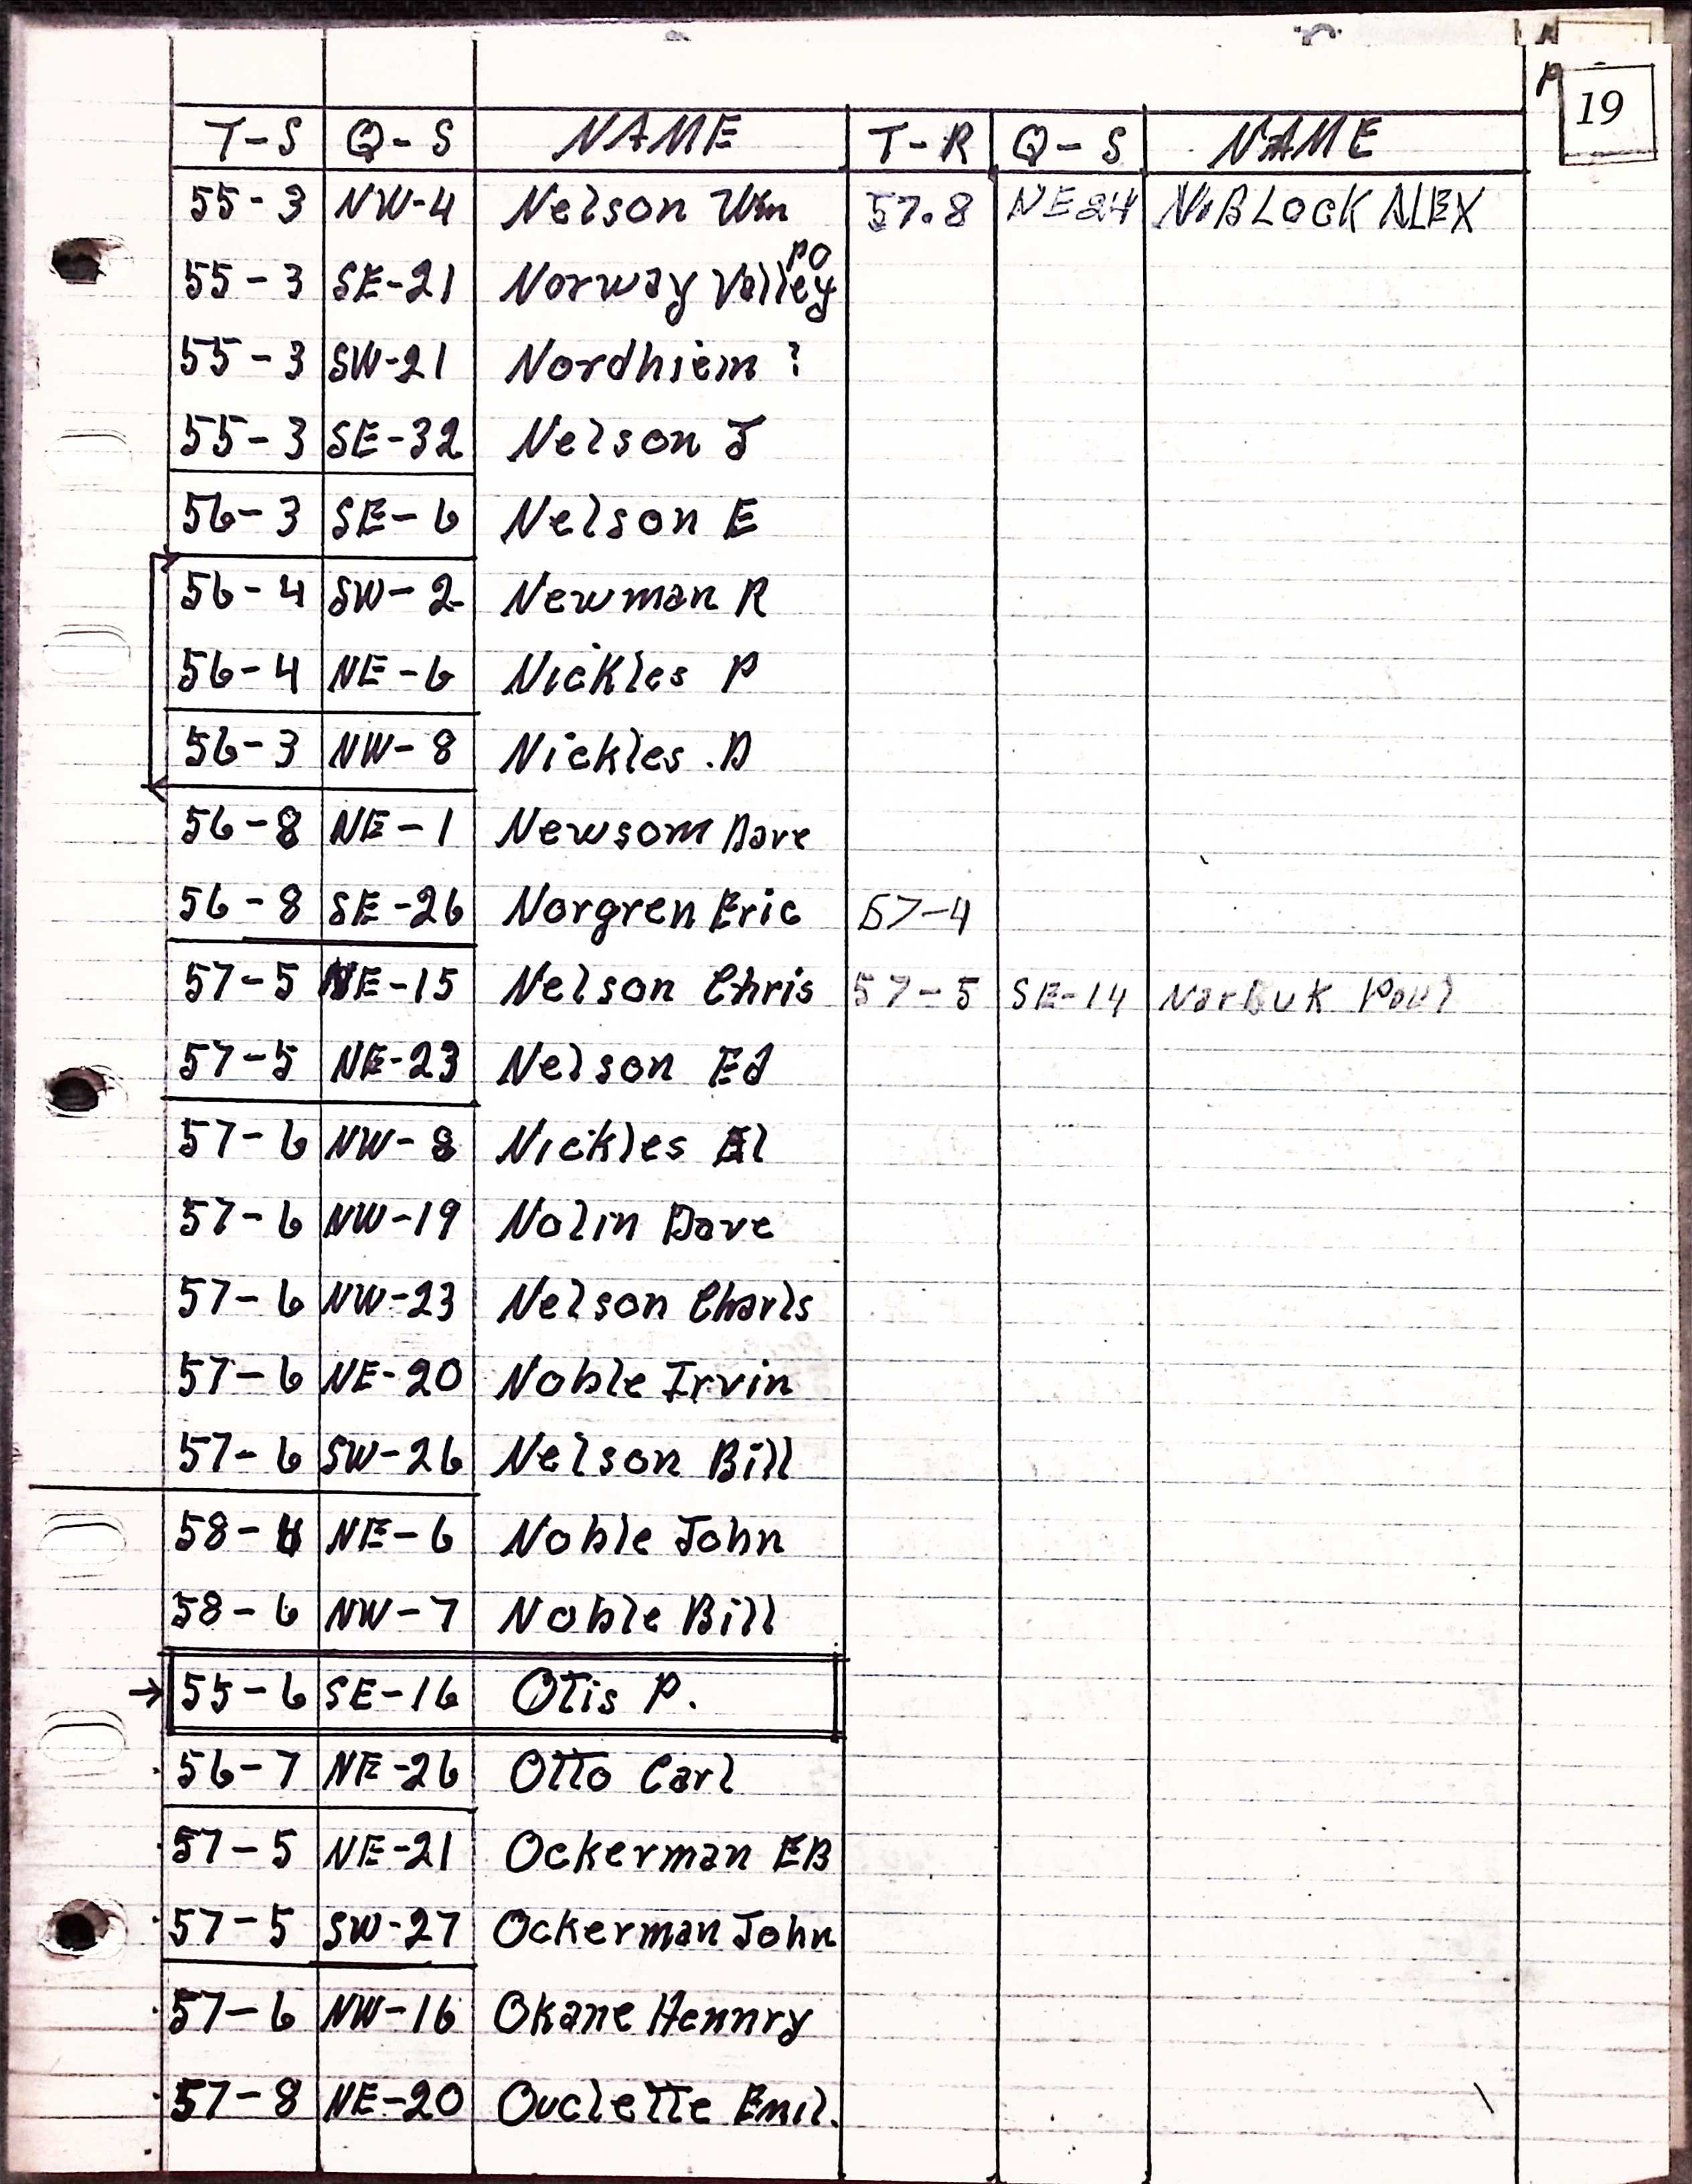 P 19
T-S Q-S NAME T-R Q-S NAME
55-3 NW-4 Nelson Wm 57.8 NE24 NoBLock ALEX
PO
55-3 SE-21 Norway Valley
55-3 SW-21 Nordhiem ?
55-3 SE-32 Nelson J
56-3 SE-6 Nelson E
56-4 SW-2 Newman R
56-4 NE-6 Nickles P
56-3 NW-8 Nickles .D
56-8 NE-1 Newsom Dave
56-8 SE-26 Norgren Eric 57-4
57-5 NE-15 Nelson Chris 57-5 SE-14 Narbuk Paul
57-5 NE-23 Nelson Ed
57-6 NW-8 Nickles Al
57-6 NW-19 Nolin Dave
57-6 NW-23 Nelson Charls
57-6 NE-20 Noble Irvin
57-6 SW-26 Nelson Bill
58-4 NE-6 Noble John
58-6 NW-7 Noble Bill
→ 55-6 SE-16 Otis P.
56-7 NE-26 Otto Carl
57-5 NE-21 Ockerman EB
57-5 SW-27 Ockerman John
57-6 NW-16 Okane Hennry
57-8 NE-20 Ouclette Emil.